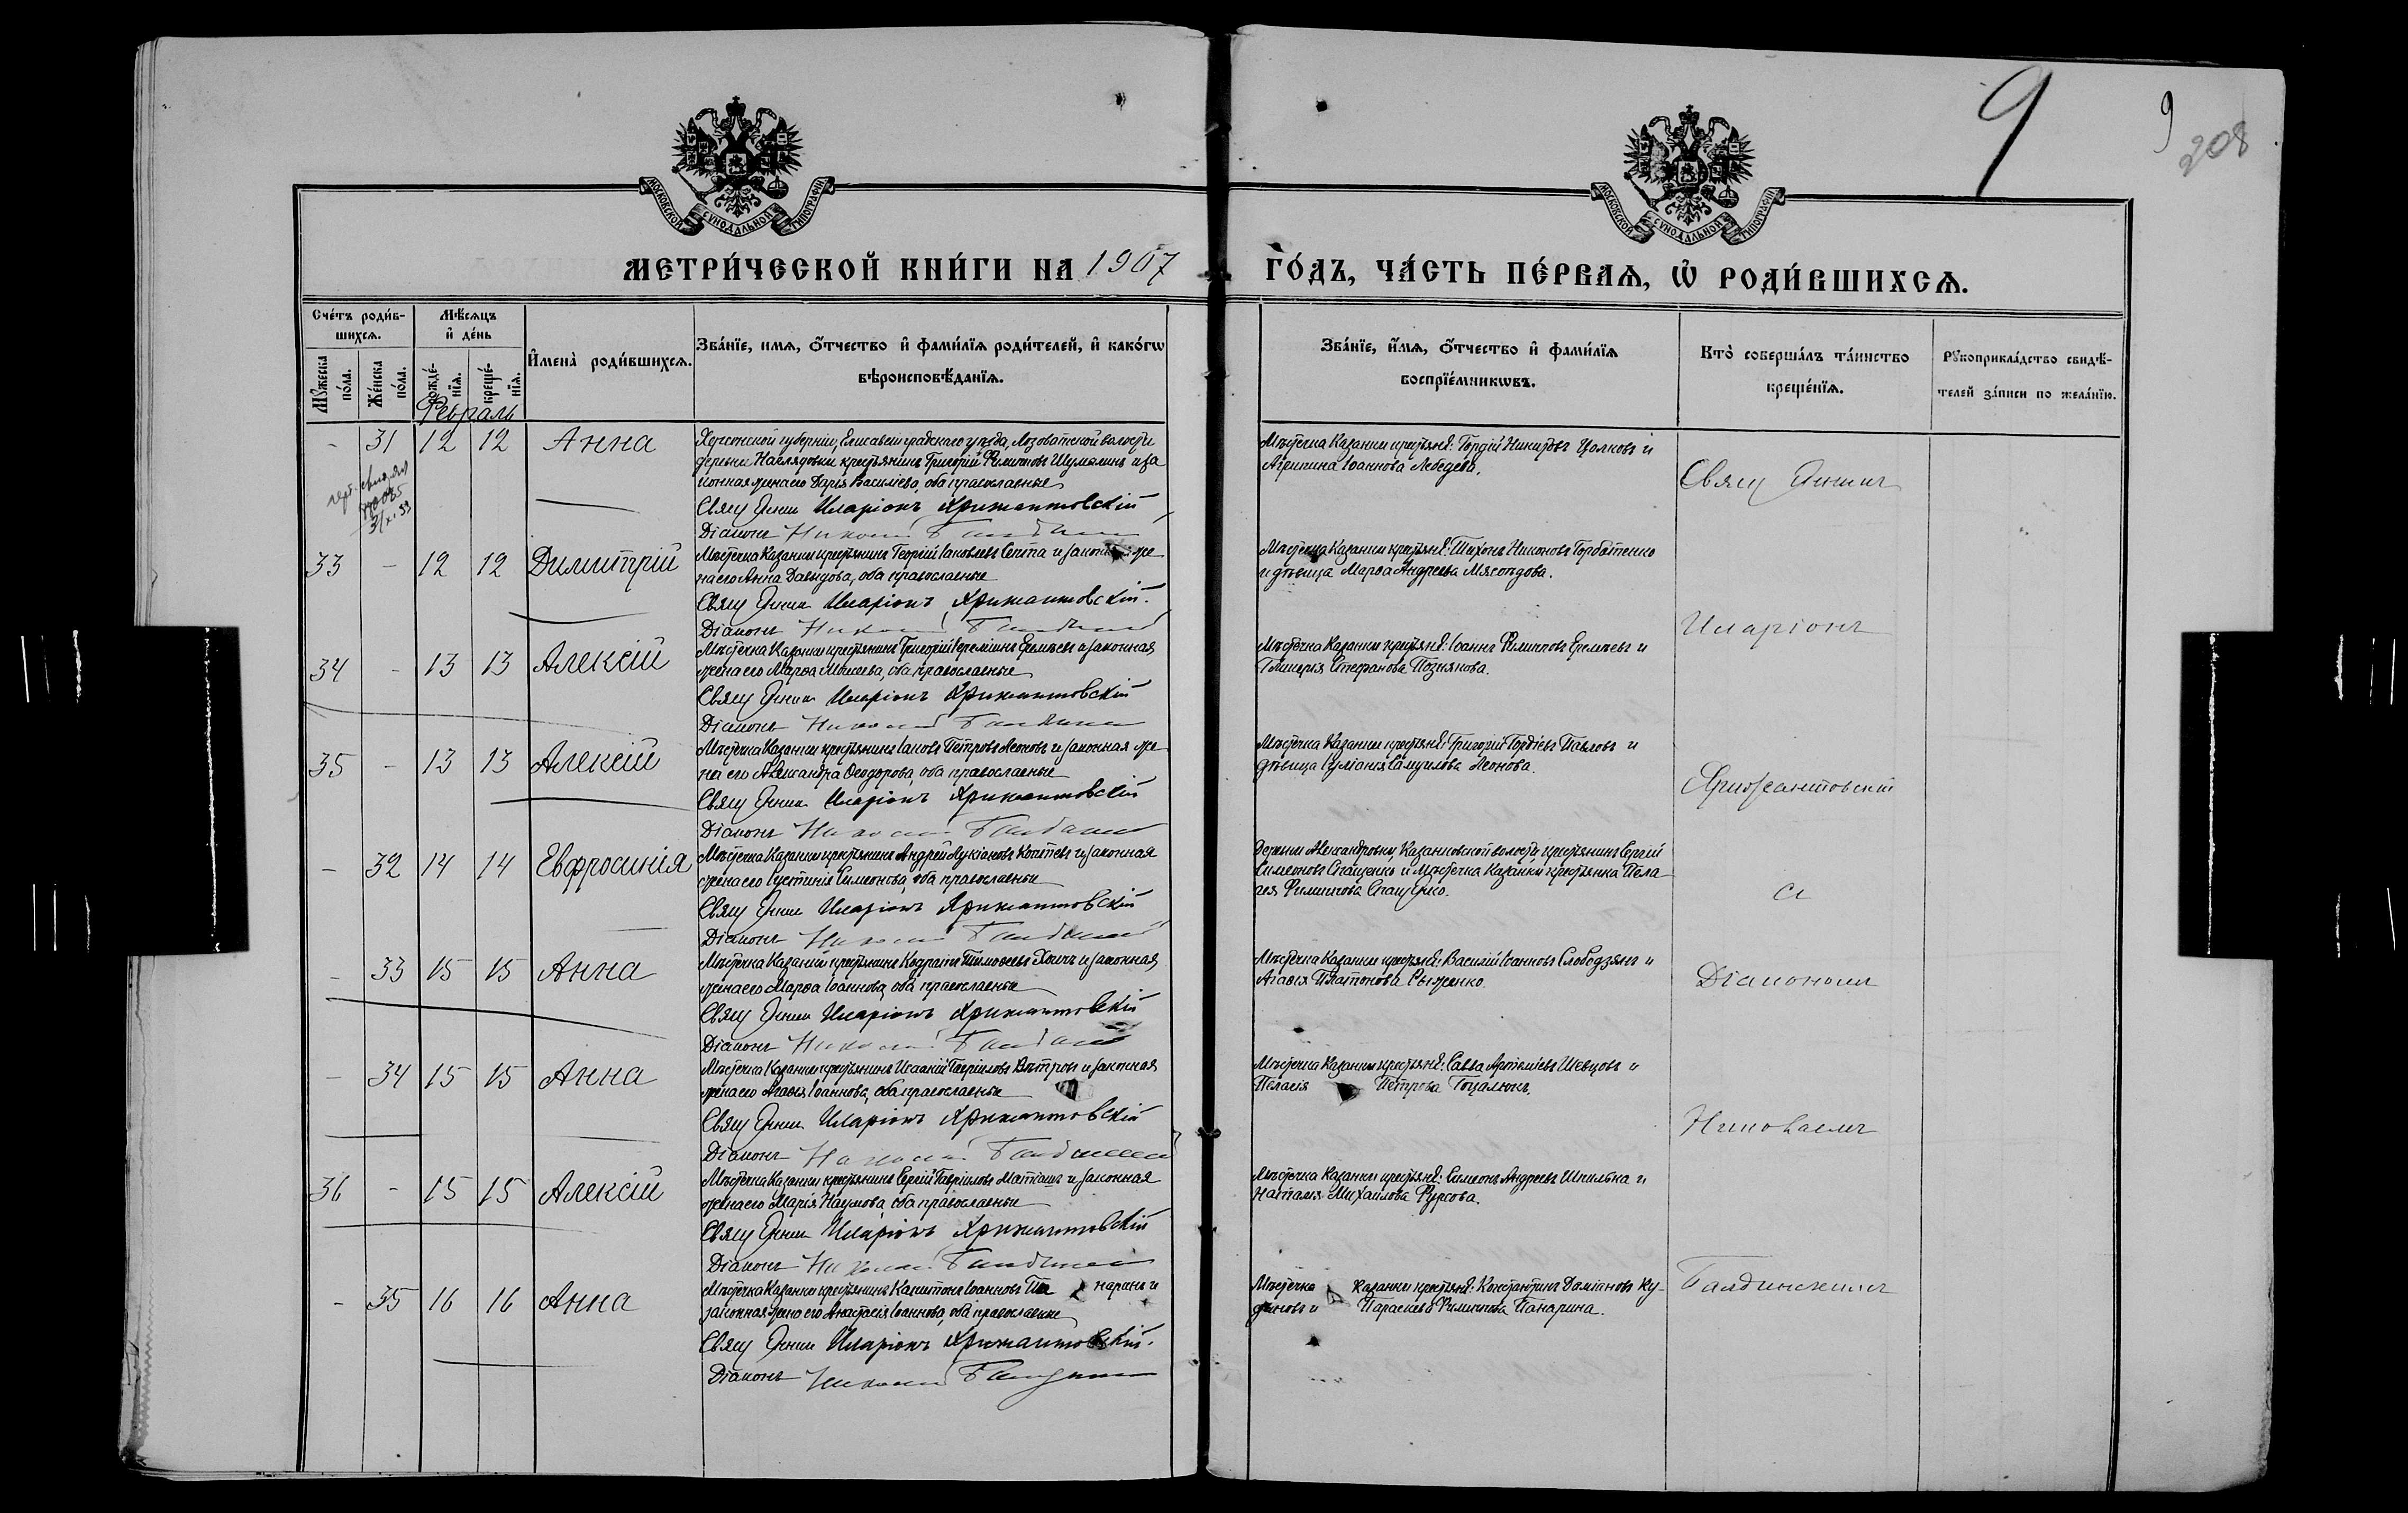 9
9
208
МОСКОВСКОЙ СѴНОДАЛЬНОЙ ТИПОГРАФІИ
МОСКОВСКОЙ СѴНОДАЛЬНОЙ ТИПОГРАФІИ
МЕТРИ́ЧЕСКОЙ КНИ́ГИ НА 1907 ГО́ДЪ, ЧА́СТЬ ПЕ́РВАѦ, Ѡ҆ РОДИ́ВШИХСѦ.
Сче́тъ роди́в-
шихсѧ.
Мѣ́сѧцъ
и҆ де́нь
Мꙋ́жеска
по́ла.
Же́нска
по́ла.
рожде́-
нїѧ.
креще́-
нїѧ.
И҆мена̀ роди́вшихсѧ.
Зва́нїе, имѧ, ѻ҆́тчество и҆ фами́лїѧ роди́телей, и҆ како́гѡ
вѣроисповѣ́данїѧ.
Зва́нїе, и҆́мѧ, ѻ҆́тчество и҆ фами́лїѧ
воспрїе́мникѡвъ.
Кто̀ соверша́лъ та́инство
креще́нїѧ.
Рꙋкоприкла́дство свидѣ́-
телей за́писи по жела́нїю.
Февраль
- 31 12 12 Анна
Херсонской губерніи, Елисаветградскаго уѣзда, Лозоватской волости
деревни Наглядовки, крестьянинъ Григорій Филипповъ Шумилинъ и за
конная жена его Дарія Василіева, оба православные
Свящ Инник Иларіонъ Хрижантовскій
Діаконъ Николай
Мѣстечка Казанки крестьяне: Гордій Никитовъ Цолковъ и
Агрипина Іоаннова Лебедева.
33 - 12 12 Димитрій
Мѣстечка Казанки крестьянинъ Георгій Іаковлевъ Септа и законная же
на его Анна Давидова, оба православные
Свящ Инник Иларіонъ Хрижантовскій.
Діаконъ Николай
Мѣстечка Казанки крестьяне: Тихонъ Никоновъ Горбатенко
и дѣвица Марѳа Андреева Мясоѣдова.
34 - 13 13 Алексій
Мѣстечка Казанки крестьянинъ Григорій Іереміинъ Еремѣевъ и законная
жена его Марѳа Моисеева, оба православные
Свящ Инник Иларіонъ Хрижантовскій
Діаконъ Николай
Мѣстечка Казанки крестьяне: Іоаннъ Филипповъ Еремѣевъ и
Гликерія Стефанова Познякова.
35 - 13 13 Алексій
Мѣстечка Казанки крестьянинъ Іаковъ Петровъ Леоновъ и законная же
на его Александра Ѳеодорова, оба православные
Свящ Инник Иларіонъ Хрижантовскій
Діаконъ Николай
Мѣстечка Казанки крестьяне: Григорій Гордіевъ Павловъ и
дѣвица Іуліанія Самуилова Леонова.
- 32 14 14 Евфросинія
Мѣстечка Казанки крестьянинъ Андрей Лукіановъ Коптевъ и законная
жена его Іустинія Симеонова, оба православные
Свящ Инник Иларіонъ Хрижантовскій
Діаконъ Николай
деревни Александровки, Казанковской волости, крестьянинъ Сергій
Симеоновъ Стащенко и Мѣстечка Казанки крестьянка Пела
гея Филиппова Стащенко.
- 33 15 15 Анна
Мѣстечка Казанки крестьянинъ Кодратъ Тимоѳеевъ и законная
жена его Марѳа Іоаннова, оба православные
Свящ Инник Иларіонъ Хрижантовскій
Діаконъ Николай
Мѣстечка Казанки крестьяне: Василій Іоанновъ Слободзянъ и
Агаѳія Платонова Рыженко.
- 34 15 15 Анна
Мѣстечка Казанки крестьянинъ Исаакій Гавріиловъ Вѣтровъ и законная
жена его Агаѳія Іоаннова, оба православные
Свящ Инник Иларіонъ Хрижантовскій
Діаконъ Николай
Мѣстечка Казанки крестьяне: Савва Артеміевъ Шевцовъ и
Пелагія Петрова Гоцалюкъ.
36 - 15 15 Алексій
Мѣстечка Казанки крестьянинъ Сергій Гавріиловъ Маткашъ и законная
жена его Марія Наумова, оба православные
Свящ Инник Иларіонъ Хрижантовскій
Діаконъ Николай
Мѣстечка Казанки крестьяне: Симеонъ Андреевъ Шпилька и
Наталія Михаилова Фурсова.
- 35 16 16 Анна
Мѣстечка Казанки крестьянинъ Капитонъ Іоанновъ Па наринъ и
законная жена его Анастасія Іоаннова, оба православные
Свящ Инник Иларіонъ Хрижантовскій.
Діаконъ Николай
Мѣстечка Казанки крестьяне: Константинъ Даміановъ Ку-
диновъ и Параскева Филиппова Панарина.
Свящ Инник
Иларіонъ
Хрижантовскій
съ
Діакономъ
Николаемъ